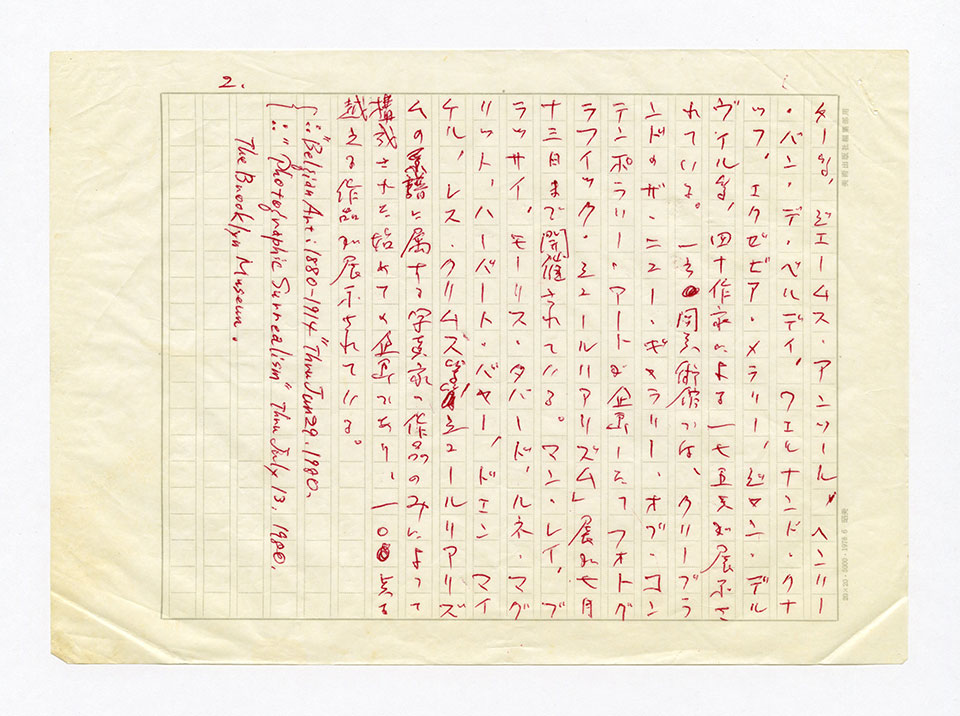 2.
ター等、ジェームス・アンソール、ヘンリー
・バン・デ・ベルディ、フェルナンド・クナ
ップ、エグゼビア・メラリー、ジァン・デル
ヴィル等、四十作家による一七五点が展示さ
れている。一方同美術館では、クリーブラ
ンドのザ・ニュー・ギャラリー・オブ・コン
テンポラリー・アートが企画した「フォトグ
ラフィック・シュールリアリズム」展が七月
十三日まで開催されている。マン・レイ、ブ
ラッサイ、モーリス・タバード、ルネ・マグ
リット、ハーバート・バヤー、ドエン マイ
ケル、レス・クリムズ等シュールリアリズ
ムの系譜に属する写真家の作品のみによって
構成された始めての企画であり、一〇〇点を
越える作品が展示されている。
∴"Belgian Art: 1880-1914" Thru Jun 29. 1980.
∴"Photographic Surrealism" Thru July 13. 1980.
The Brooklyn Museum.
美術出版社編集部用